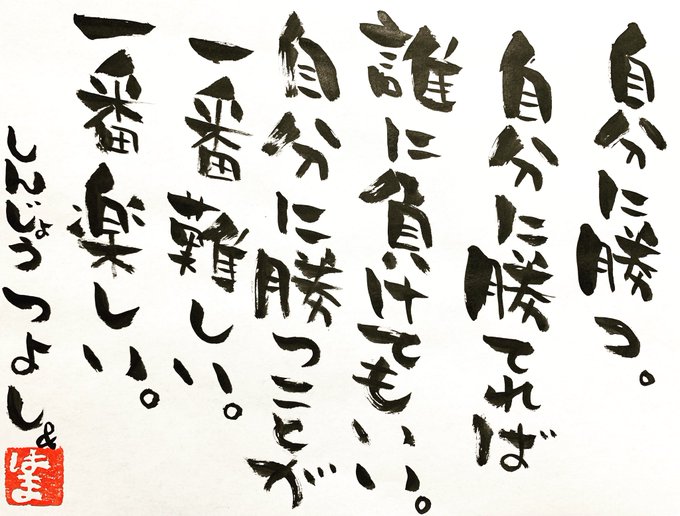 自分に勝つ。
自分に勝てれば
誰に負けてもいい。
自分に勝つことが
一番難しい。
一番楽しい。
しんじょうつよし&
はま